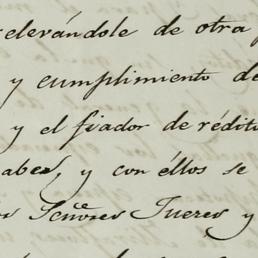 relevándole de otra
y cumplimiento de
y el fiador de rédito
abes, y con éllos se
Señores Jueres y